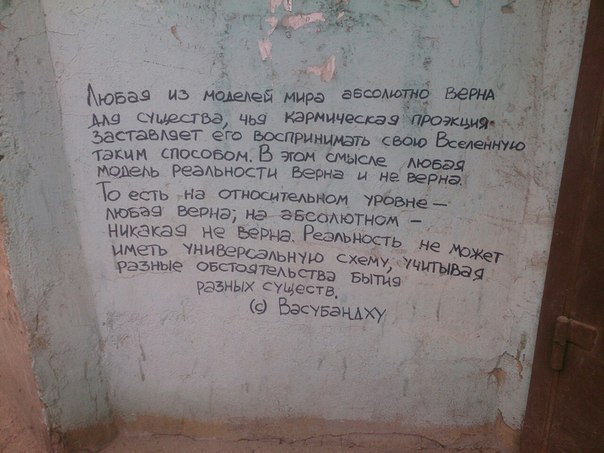 Любая из моделей мира абсолютно верна
для существа, чья кармическая проэкция
заставляет его воспринимать свою Вселенную
таким способом. В этом смысле любая
модель реальности верна и не верна.
То есть на относительном уровне —
любая верна; на абсолютном –
никакая не верна. Реальность не может
иметь универсальную схему, учитывая
разные обстоятельства бытия
разных существ.
(с) Васубандху